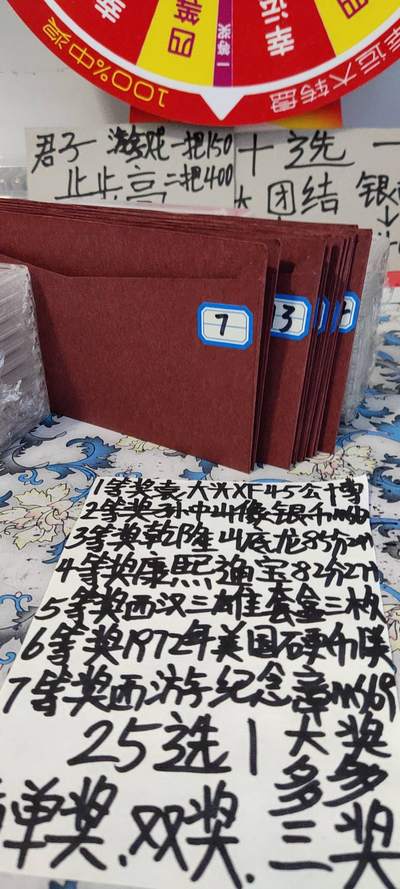 幸
四等
一等奖
幸运
四
100%中奖
幸运大转盘
君子 游戏一把150
止止高 二把400
十选一
团结 银
7
3
1等奖袁大头XF45公博
2等奖孙中山像银币MS62
3等奖乾隆山底龙85分
4等奖康熙通宝82分27
5等奖西汉三雄套盒三枚
6等奖1972年美国硬币
7等奖西游纪念章MS69
25选1 大奖
多多
单奖、双奖、三奖